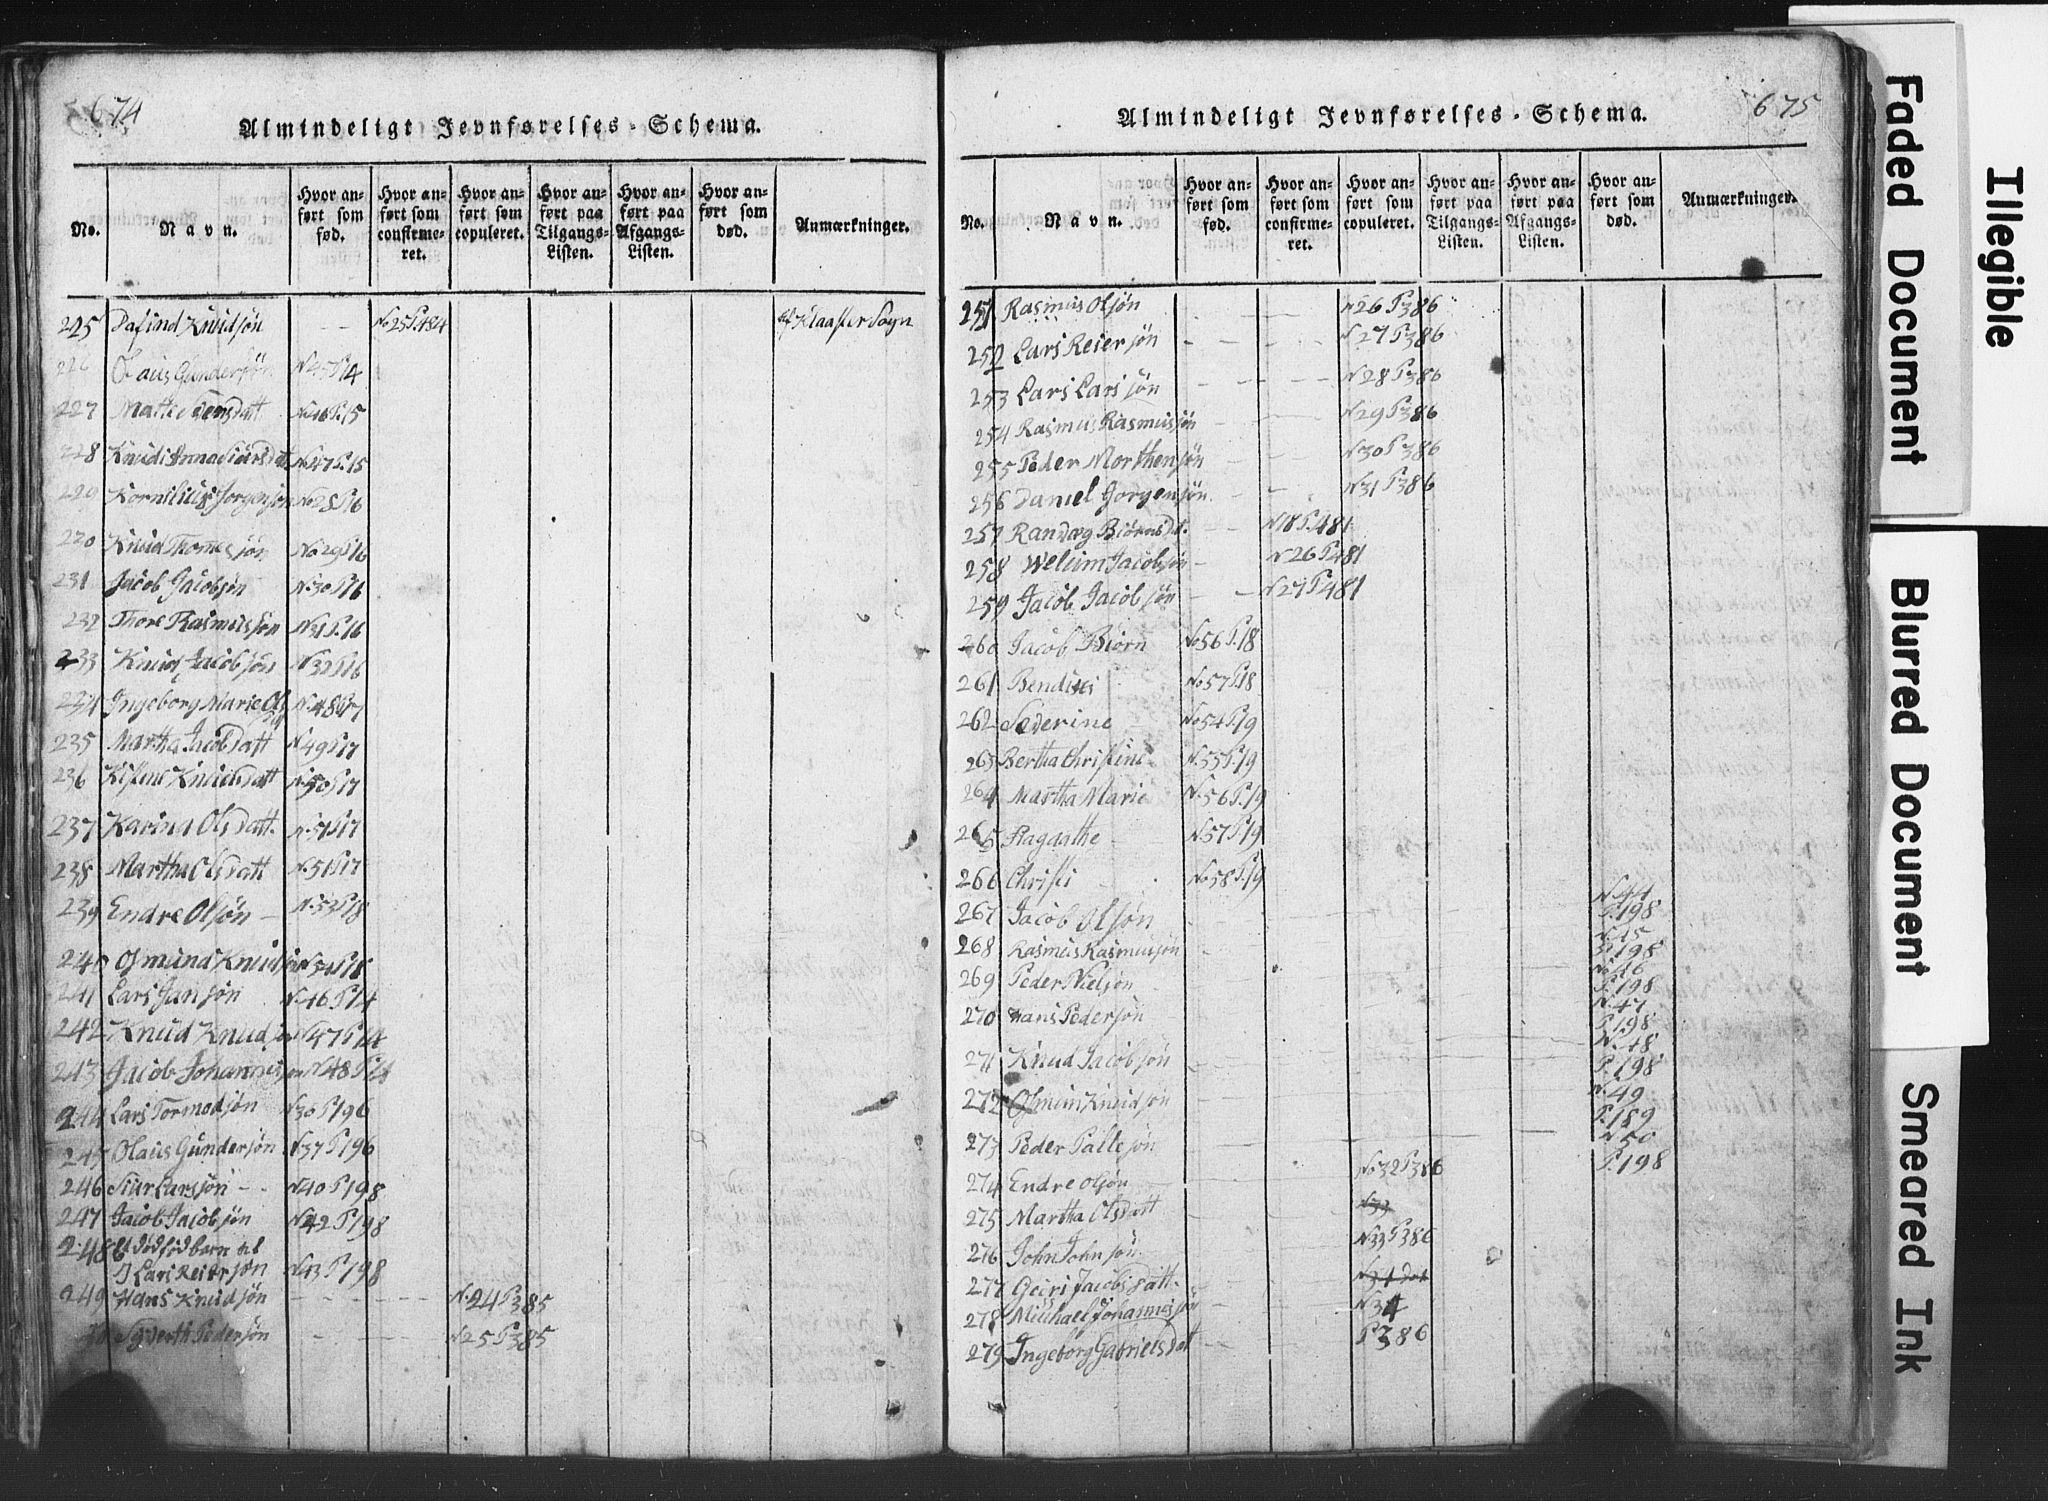 674
Almindeligt Jevnførelses-Schema.
No.
Navn.
Hvor an-
ført som
fød.
Hvor an-
ført som
confirme-
ret.
Hvor an-
ført som
copuleret.
Hvor an-
ført paa
Tilgangs-
Listen.
Hvor an-
ført paa
Afgangs-
Listen.
Hvor an-
ført som
død.
Anmærkninger.
225 Dafind Knudsøn - - No 25 P 484 af Klaaster Sogn
226 Olaus Gundersøn N 45 P 14
227 Malti N 46 P. 15
228 Knudi Anna N 47 P. 15
229 Kornilius Jorgensøn No 28 P 16
230 Knud Thomesøn No 29 P 16
231 Jacob Jacobsøn N. 30 P 16
232 Thore Rasmussøn N 31 P. 16
233 Knud Jacobsøn N 32 P 16
234 Ingeborg Marie Ols N. 48 P 17
235 Martha Jacobsdatt N 49 P 17
236 Kistene Knudsdatt N. 50 P 17
237 Karina Olsdatt. N. 51 P 17
238 Martha Olsdatt N. 51 P 17
239 Endre Olsøn - N. 53 P 18
240 Osmund Knudsøn N 54 P 18
241 Lars Jansøn N. 46 P 14
242 Knud Knudsøn N 47 P 14
243 Jacob Johannissen N 48 P 14
244 Lars Tormodsøn N 30 P 196
245 Olaus Gundersøn N 37 P 196
246 Siur Larssøn - - N 40 P 198
247 Jacob Jacobsøn N 42 P 198
248 et dødfød barn til
Lars Reiersøn N 43 P 198
249 Hans Knudsøn - - - - N. 24 P 385
50 Syverth Pedersøn - - - N 25 P 385
675
Almindeligt Jevnførelses-Schema.
No.
Navn.
Hvor an-
ført som
fød.
Hvor an-
ført som
confirme-
ret.
Hvor an-
ført som
copuleret.
Hvor an-
ført paa
Tilgangs-
Listen.
Hvor an-
ført paa
Afgangs-
Listen.
Hvor an-
ført som
død.
Anmærkninger.
251 Rasmus Olsøn - - - N 26 P 386
252 Lars Reiersøn - - - N 27 P 386
253 Lars Larssøn - - - N 28 P 386
254 Rasmus Rasmussøn - - N 29 P 386
255 Peder Morthensøn - - N 30 P 386
256 Daniel Gorgensøn - - N 31 P 386
257 Randveg Biørnsdt. - N 18 P. 481
258 Welum Jacobsøn - N 26 P 481
259 Jacob Jacobsøn - - N 27 P 481
260 Jacob Biørn No 56 P. 18
261 Bendixi No 57 P 18
262 Sæverine No 54 P. 19
263 Bertha Christine N. 55 P. 19
264 Martha Marie N. 56 P. 19
265 Ragaathe N. 57 P. 19
266 Christi - No 58 P. 19
267 Jacob Olsøn N 44
P. 198
268 Rasmus Rasmussøn N 45
P 198
269 Peder Nielsøn No 46
P. 198
270 Hans Pedersøn N. 47
P. 198
271 Knud Jacobsøn N. 48
P. 198
272 Osmun Knudsøn N. 49
P. 189
273 Peder Pallesøn N 50
P. 198
274 Endre Olsøn No 32 P 386
275 Martha Olsdatt N 33
276 John Johnsøn N 33 P 386
277 Geiri Jacobsdatt.
278 Michael Johannissøn - - N 34
279 Ingeborg Gabrielsdat - - P 386
Illegible
Faded Document
Blurred Document
Smeared Ink